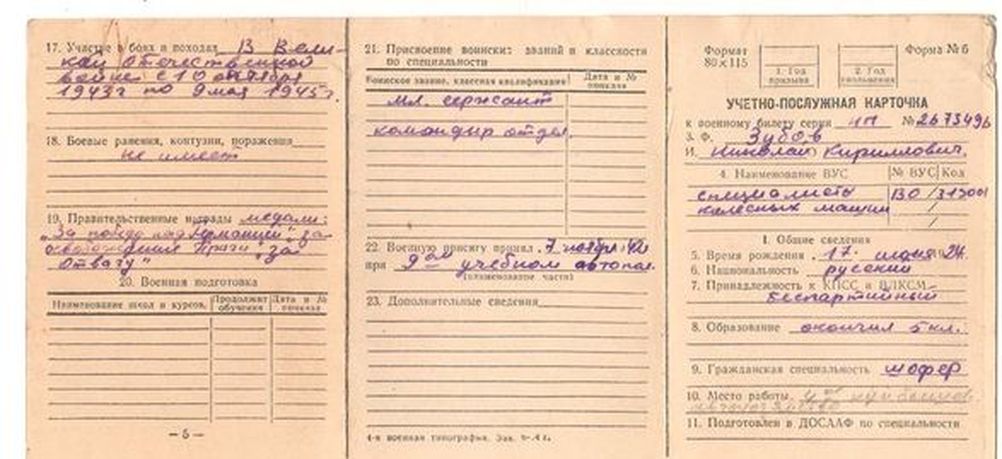 17. Участие в боях и походах В Вели-
кой Отечественной
войне с 10 октября
1943г по 9 мая 1945г.
18. Боевые ранения, контузии, поражения
не имеет
19. Правительственные награды медали:
„За победу над Германией" „за
освобождение Праги" „за
Отвагу"
20. Военная подготовка
Наименование школ и курсов,
Продолжит обучения
Дата и №
— 5 —
21. Присвоение воинских званий и классности
по специальности
Воинское звание, классная квалификация
Дата и №
мл. сержант
командир отдел.
22. Военную присягу принял 7 ноября 42г
при 9ом учебном автопол.
(наименование части)
23. Дополнительные сведения
4-я военная типография. Зак.
Формат
80×115
1. Год
призыва
2. Год
Форма № 6
УЧЕТНО-ПОСЛУЖНАЯ КАРТОЧКА
к военному билету серия №2673496
3. Ф. Зубов
И. Николай Кириллович.
4. Наименование ВУС
№ ВУС
Код
специалисты
колесных машин
1. Общие сведения
5. Время рождения 17. июня 24.
6. Национальность русский
7. Принадлежность к КПСС и ВЛКСМ
беспартийный
8. Образование окончил 5 кл.
9. Гражданская специальность шофер
10. Место работы.
11. Подготовлен в ДОСААФ по специальности